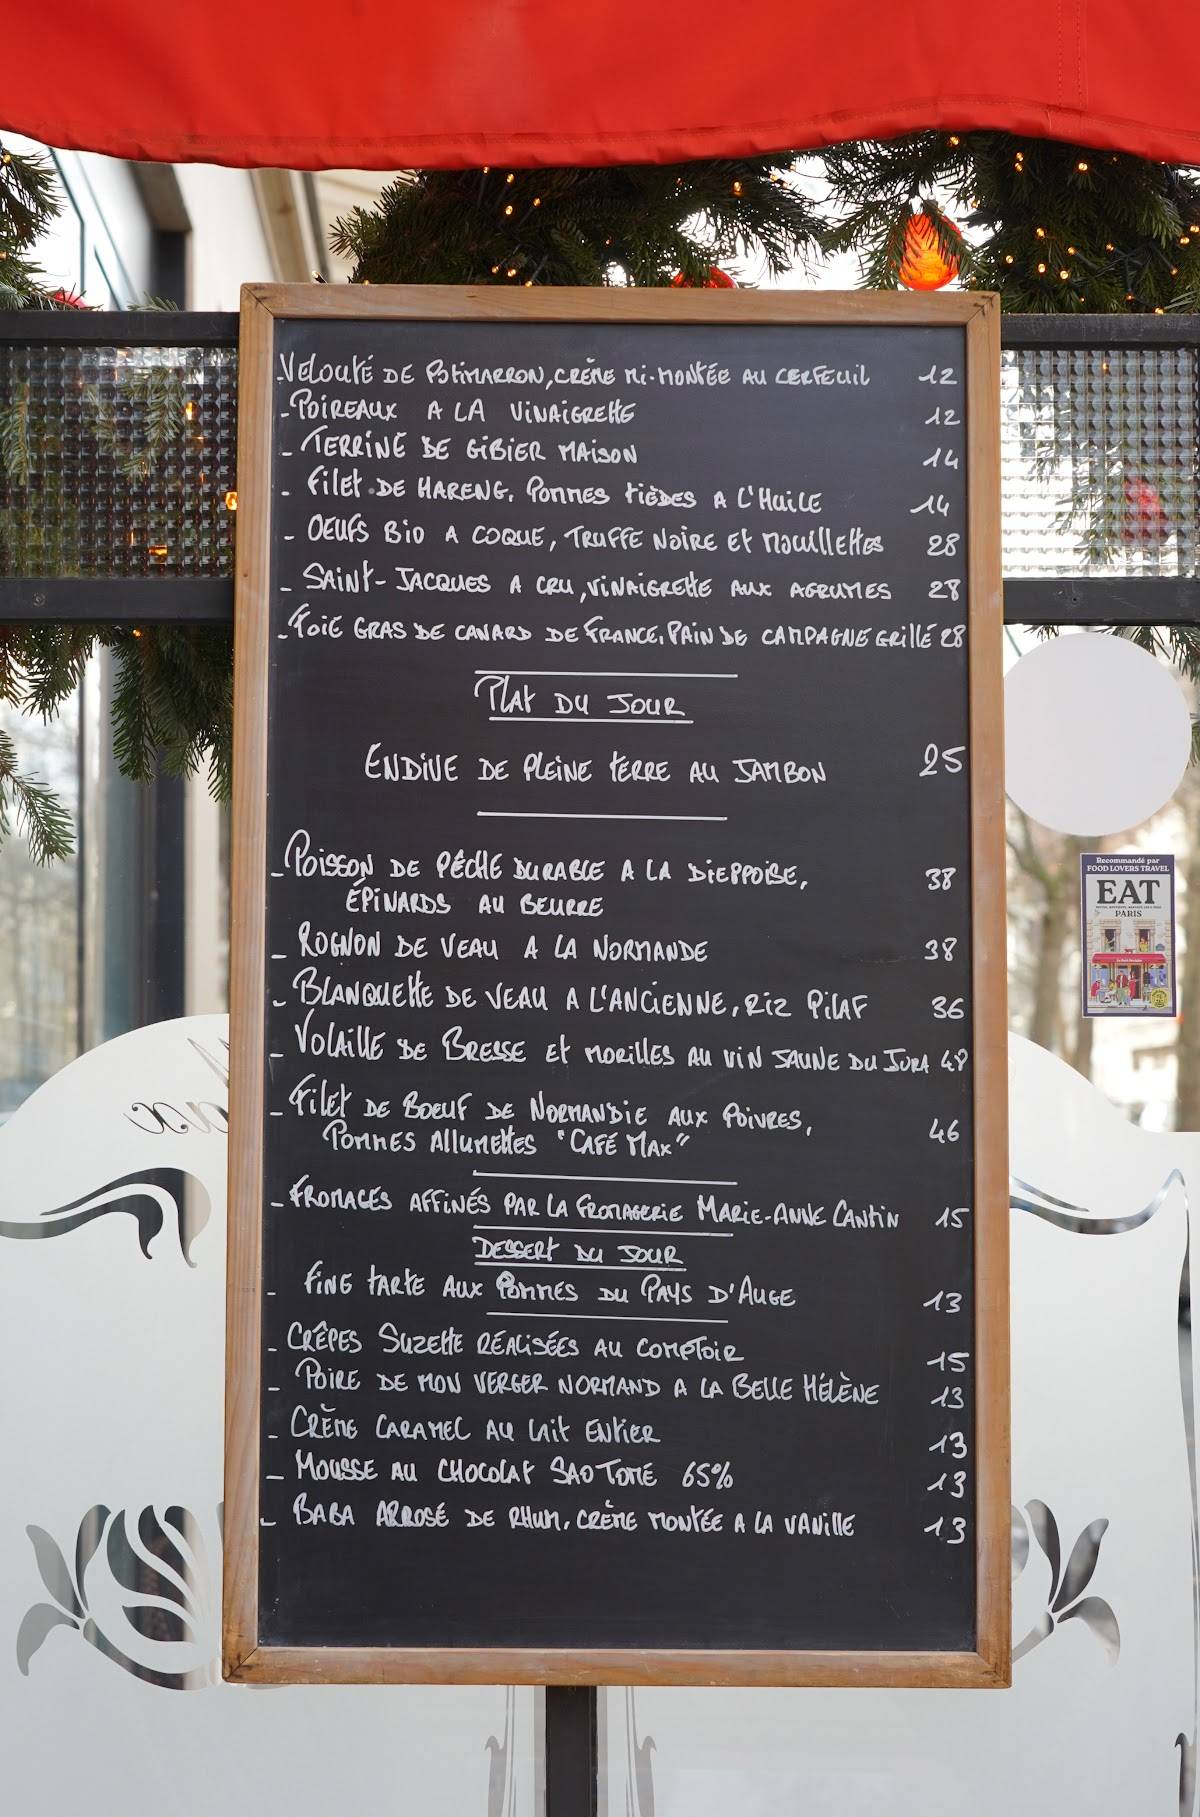 - Velouté de Potimarron, crème mi-montée au cerfeuil 12
- Poireaux a la vinaigrette 12
- Terrine de gibier maison 14
- Filet de hareng, Pommes tièdes a l'huile 14
- Oeufs bio a coque, truffe noire et mouillettes 28
- Saint-Jacques a cru, vinaigrette aux agrumes 28
- Foie gras de canard de France, Pain de campagne grillé 28
Plat du jour
Endive de pleine terre au jambon 25
- Poisson de pêche durable a la dieppoise, 38
épinards au beurre
- Rognon de veau a la normande 38
- Blanquette de veau a l'ancienne, riz pilaf 36
- Volaille de Bresse et morilles au vin jaune du Jura 48
- Filet de boeuf de Normandie aux poivres,
Pommes allumettes "Café Max" 46
- Fromages affinés par la fromagerie Marie-Anne Cantin 15
Dessert du jour
- Fine tarte aux pommes du Pays d'Auge 13
- Crêpes Suzette réalisées au comptoir 15
- Poire de mon verger normand a la Belle Hélène 13
- Crème caramel au lait entier 13
- Mousse au chocolat Sao Tomé 65% 13
- Baba arrosé de rhum, crème montée a la vanille 13
Recommandé par
FOOD LOVERS TRAVEL
EAT
PARIS